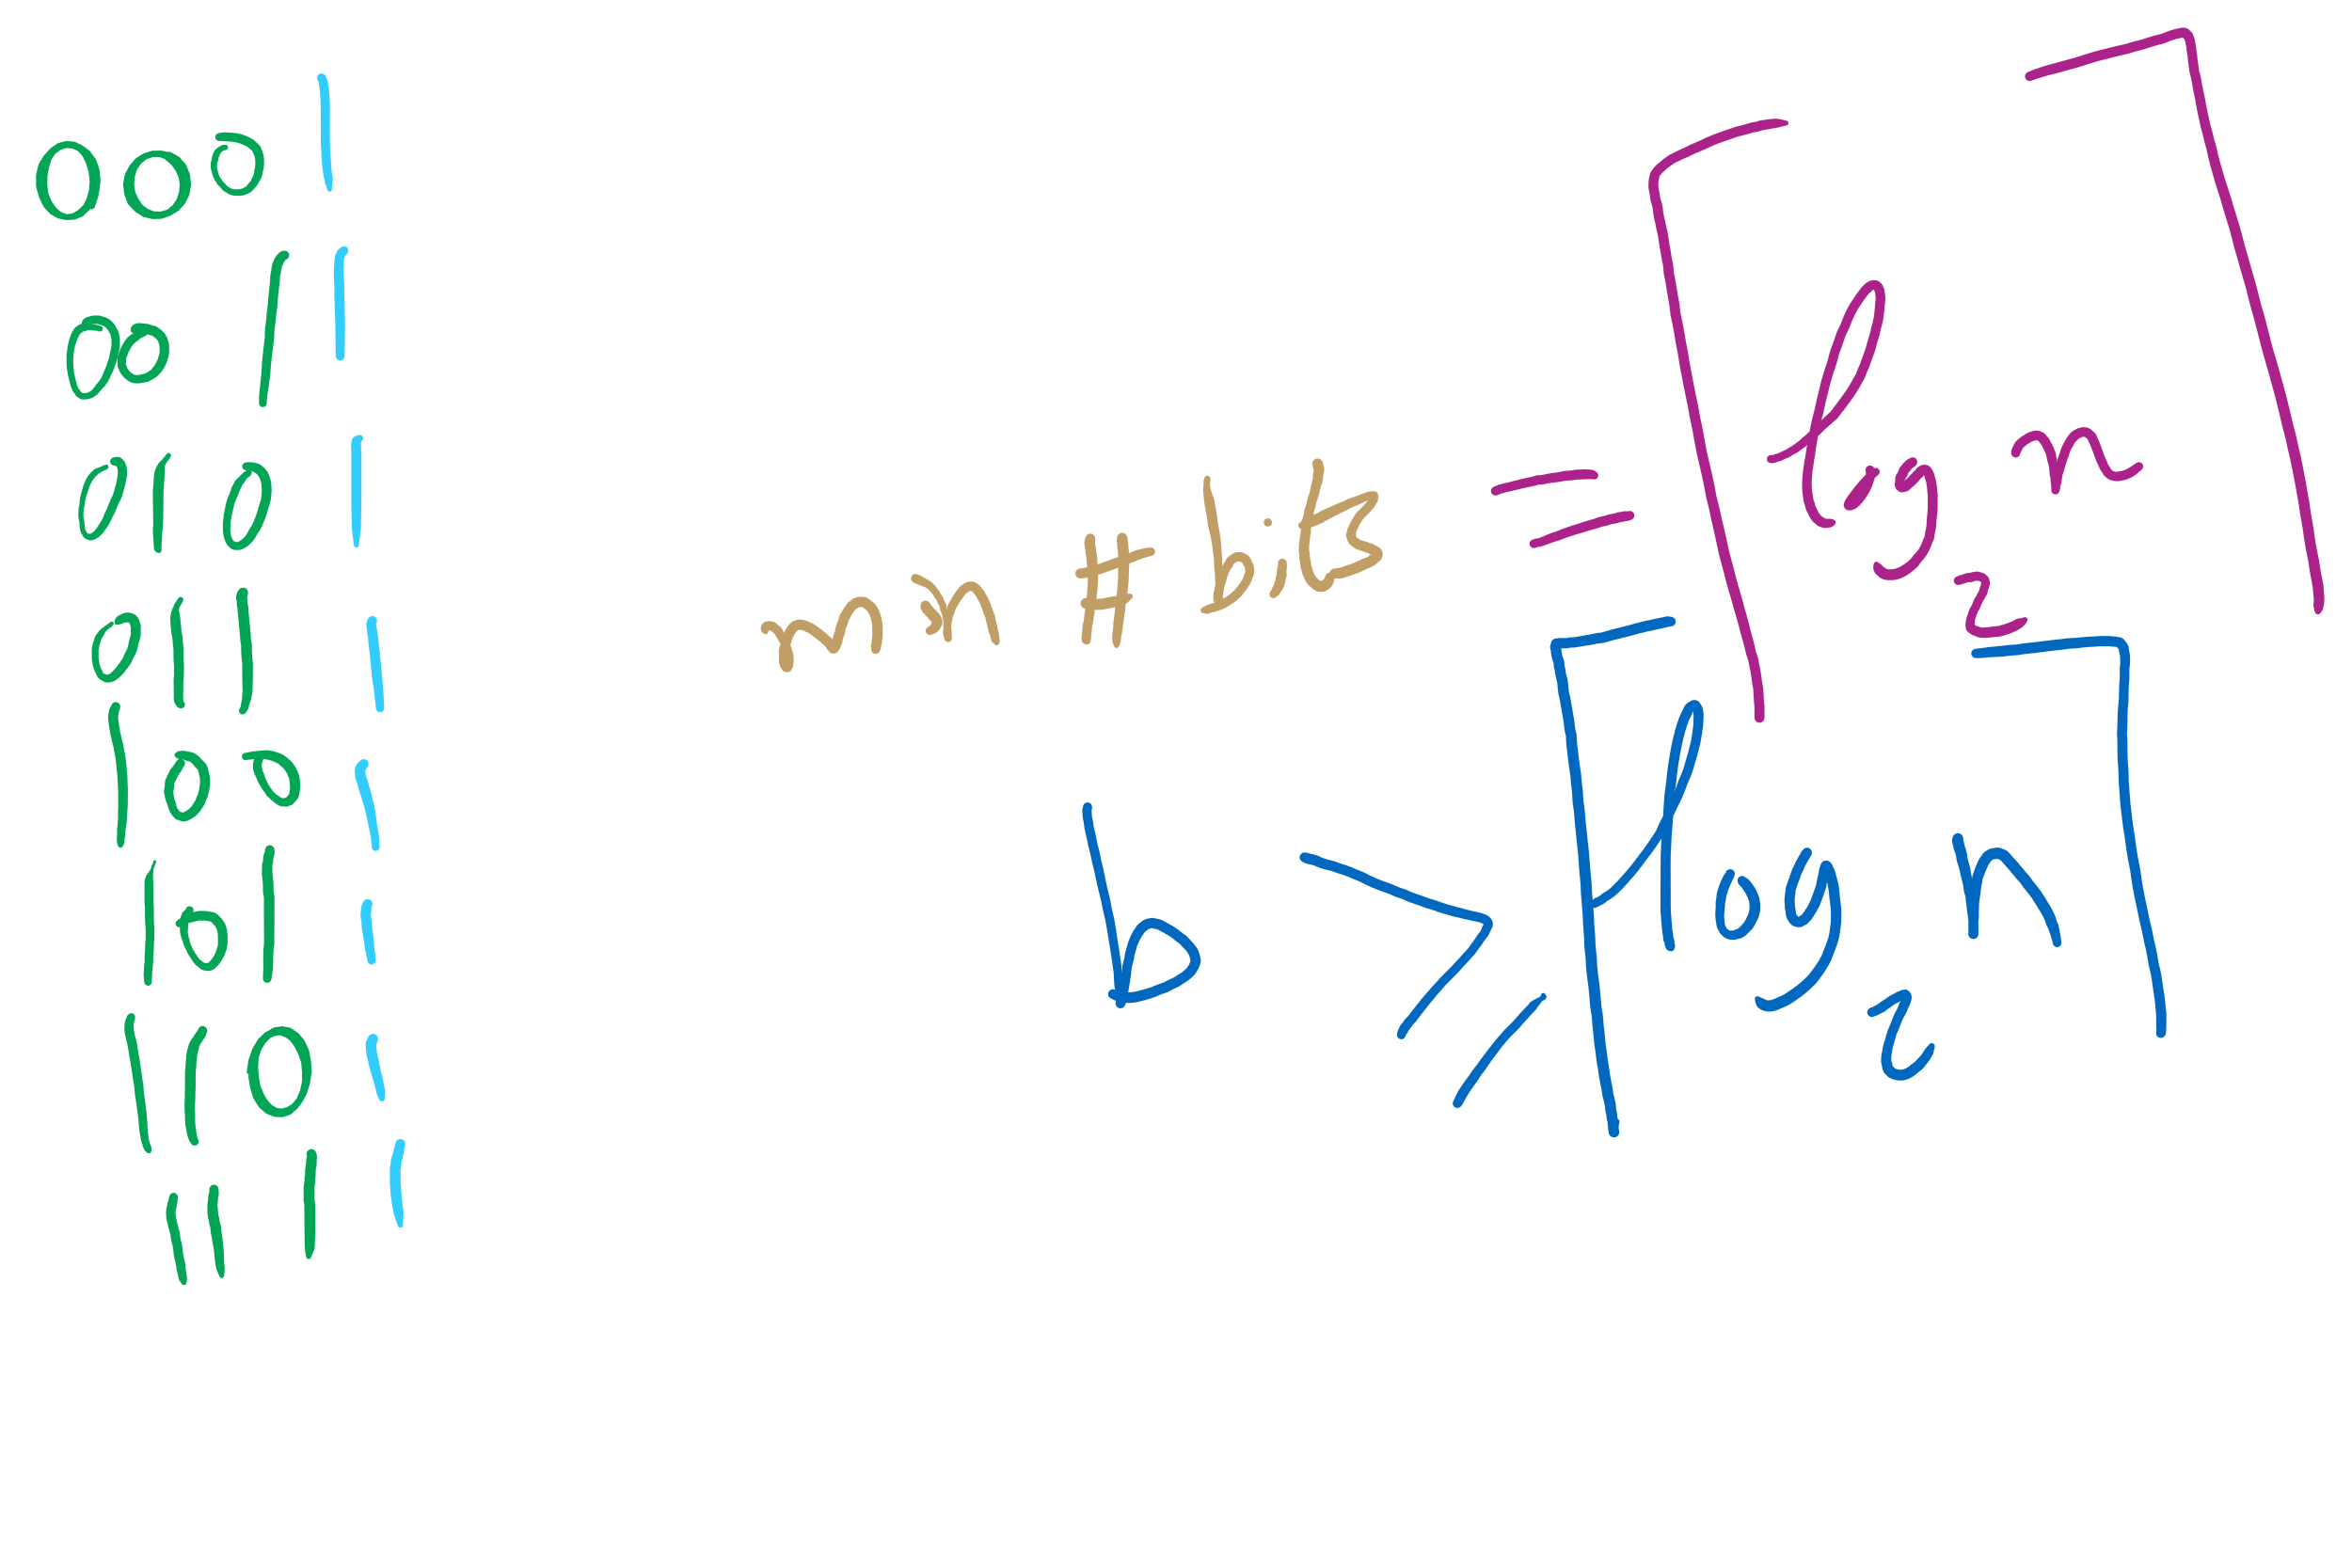 000 |
001 |
010 |
011 |
100 |
101 |
110 |
111 |
min # bits = ⌈log₂ n⌉
b ≥ ⌈log₂ n⌉